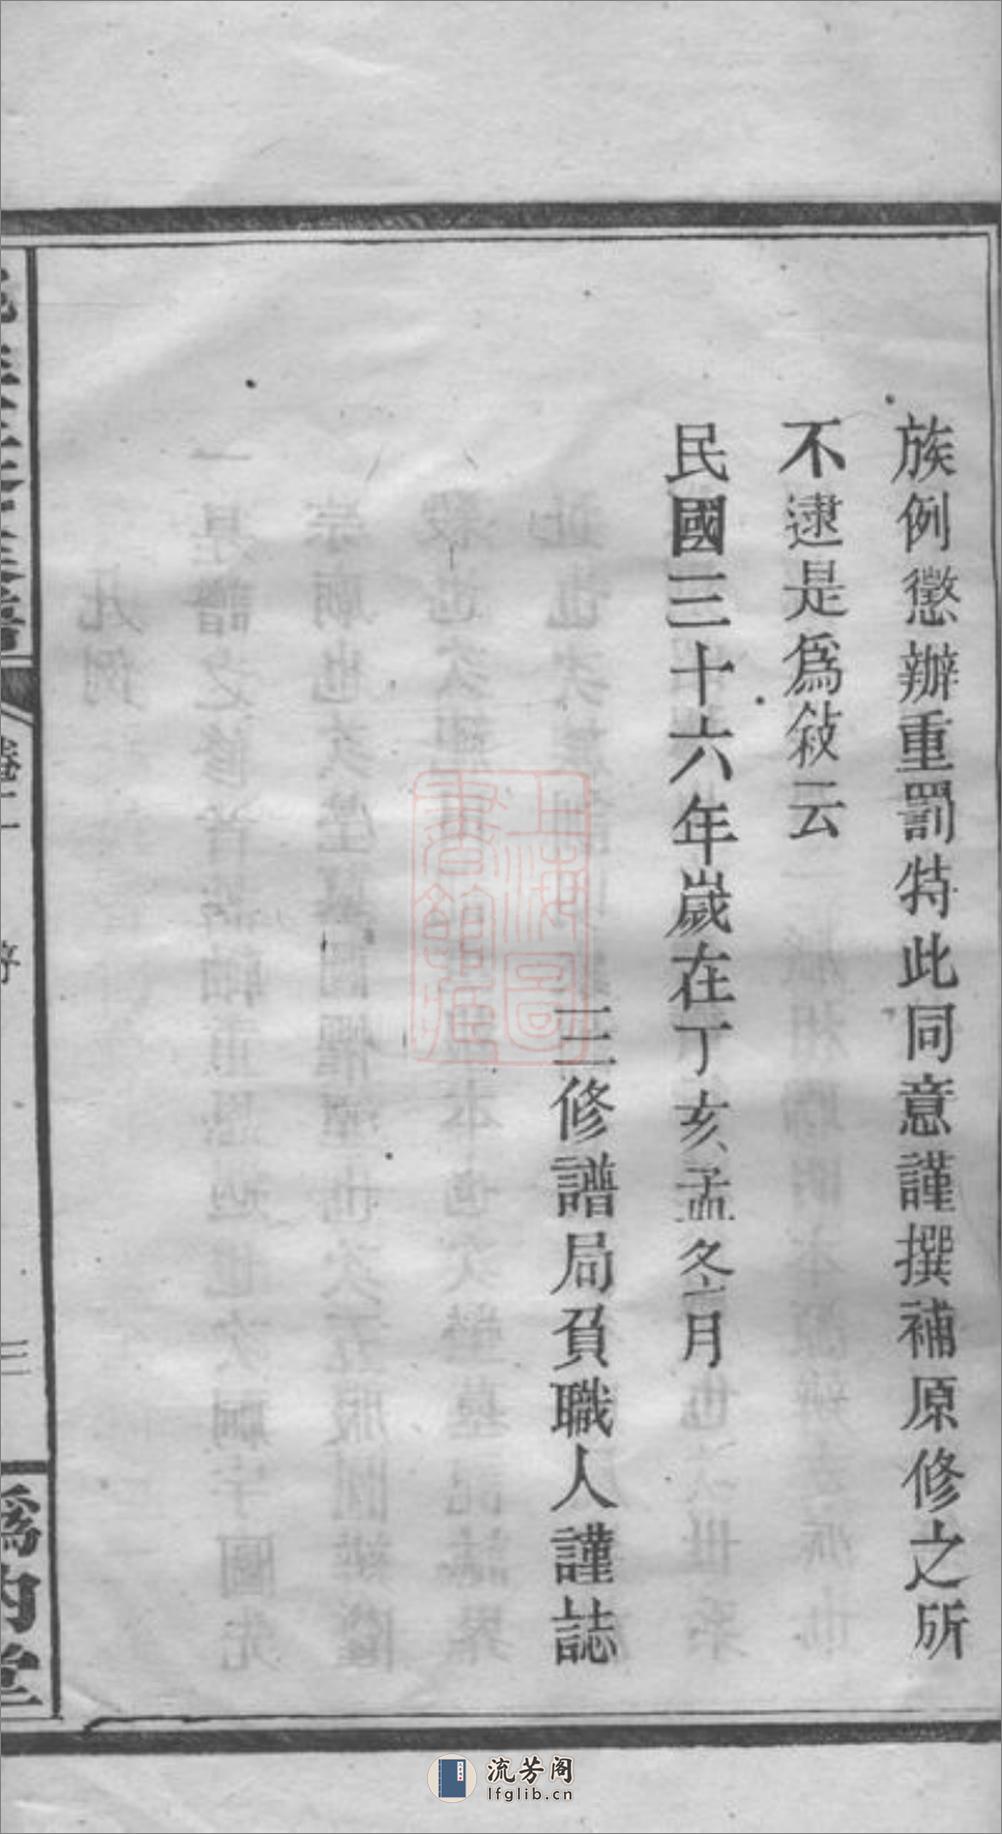 族例懲辦重罰特此同意謹撰補原修之所
不逮是爲敍云
民國三十六年歲在丁亥孟冬月
三修譜局負職人謹誌
卷一
序
三
上海圖書館藏
流芳阁
lfglib.cn